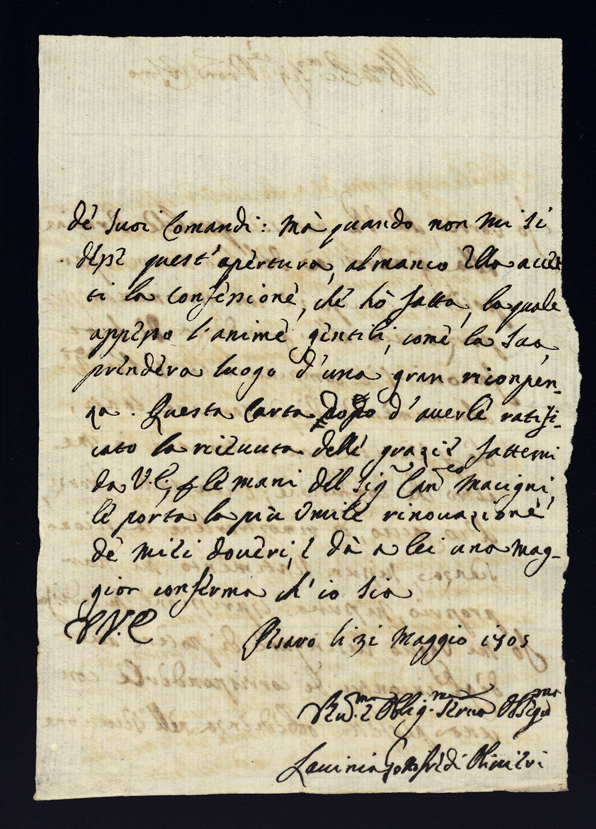 de' suoi Comandi: mà quando non mi si
desse quest'apertura, almanco Ella accet
ti la confessione, che hò fatta, la quale
appresso l'anime gentili, come la sua,
prenderà luogo d'una gran riconpen-
za. Questa Carta dopo d'averle ratifi-
cato la riceuuta delle grazie fattemi
da V.E., p le mani del Sigr Canco Macigni,
le porta la più umile rinouazione
de' miei doueri, e dà a lei una mag-
gior conferma ch'io sia
D V.E.
Pesaro li 31 Maggio 1705
Deuma e Obligma serua Obsequma
Lauinia Gottifredi Oliuieri